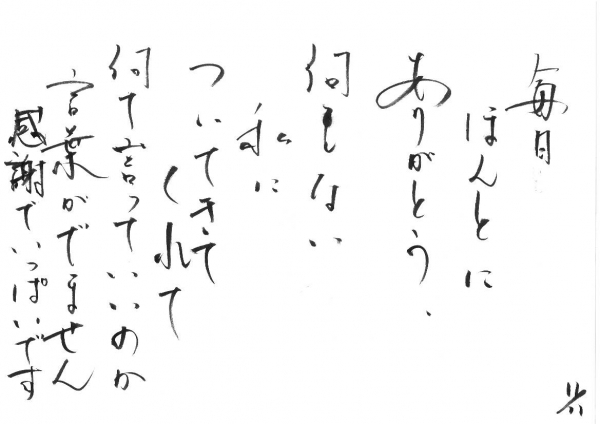 毎日
ほんとに
ありがとう、
何もしない
私に
ついてきて
くれて
何て言っていいのか
言葉がでません
感謝でいっぱいです